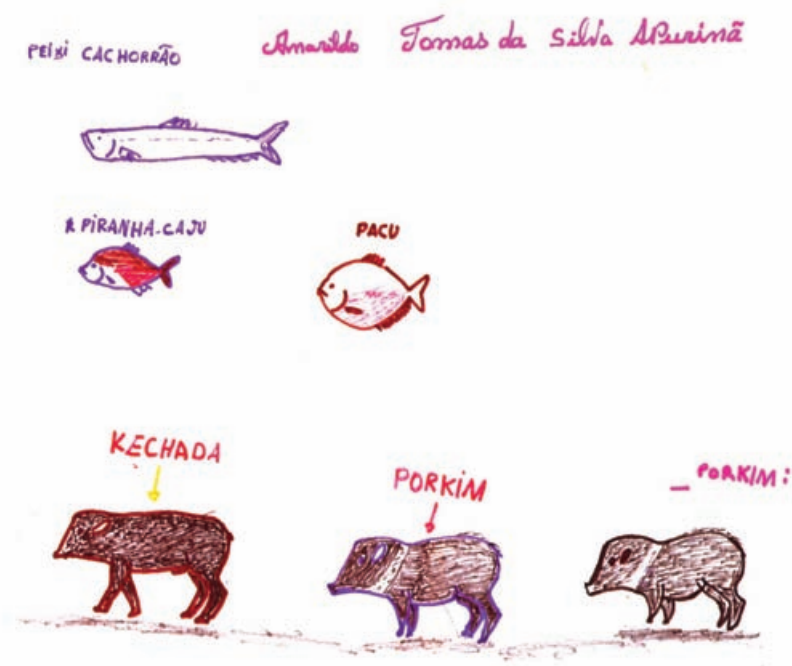 PEIXI CACHORRÃO
Amarildo Tomas da Silva APurinã
PIRANHA-CAJU
PACU
KECHADA
PORKIM
_ PORKIM: